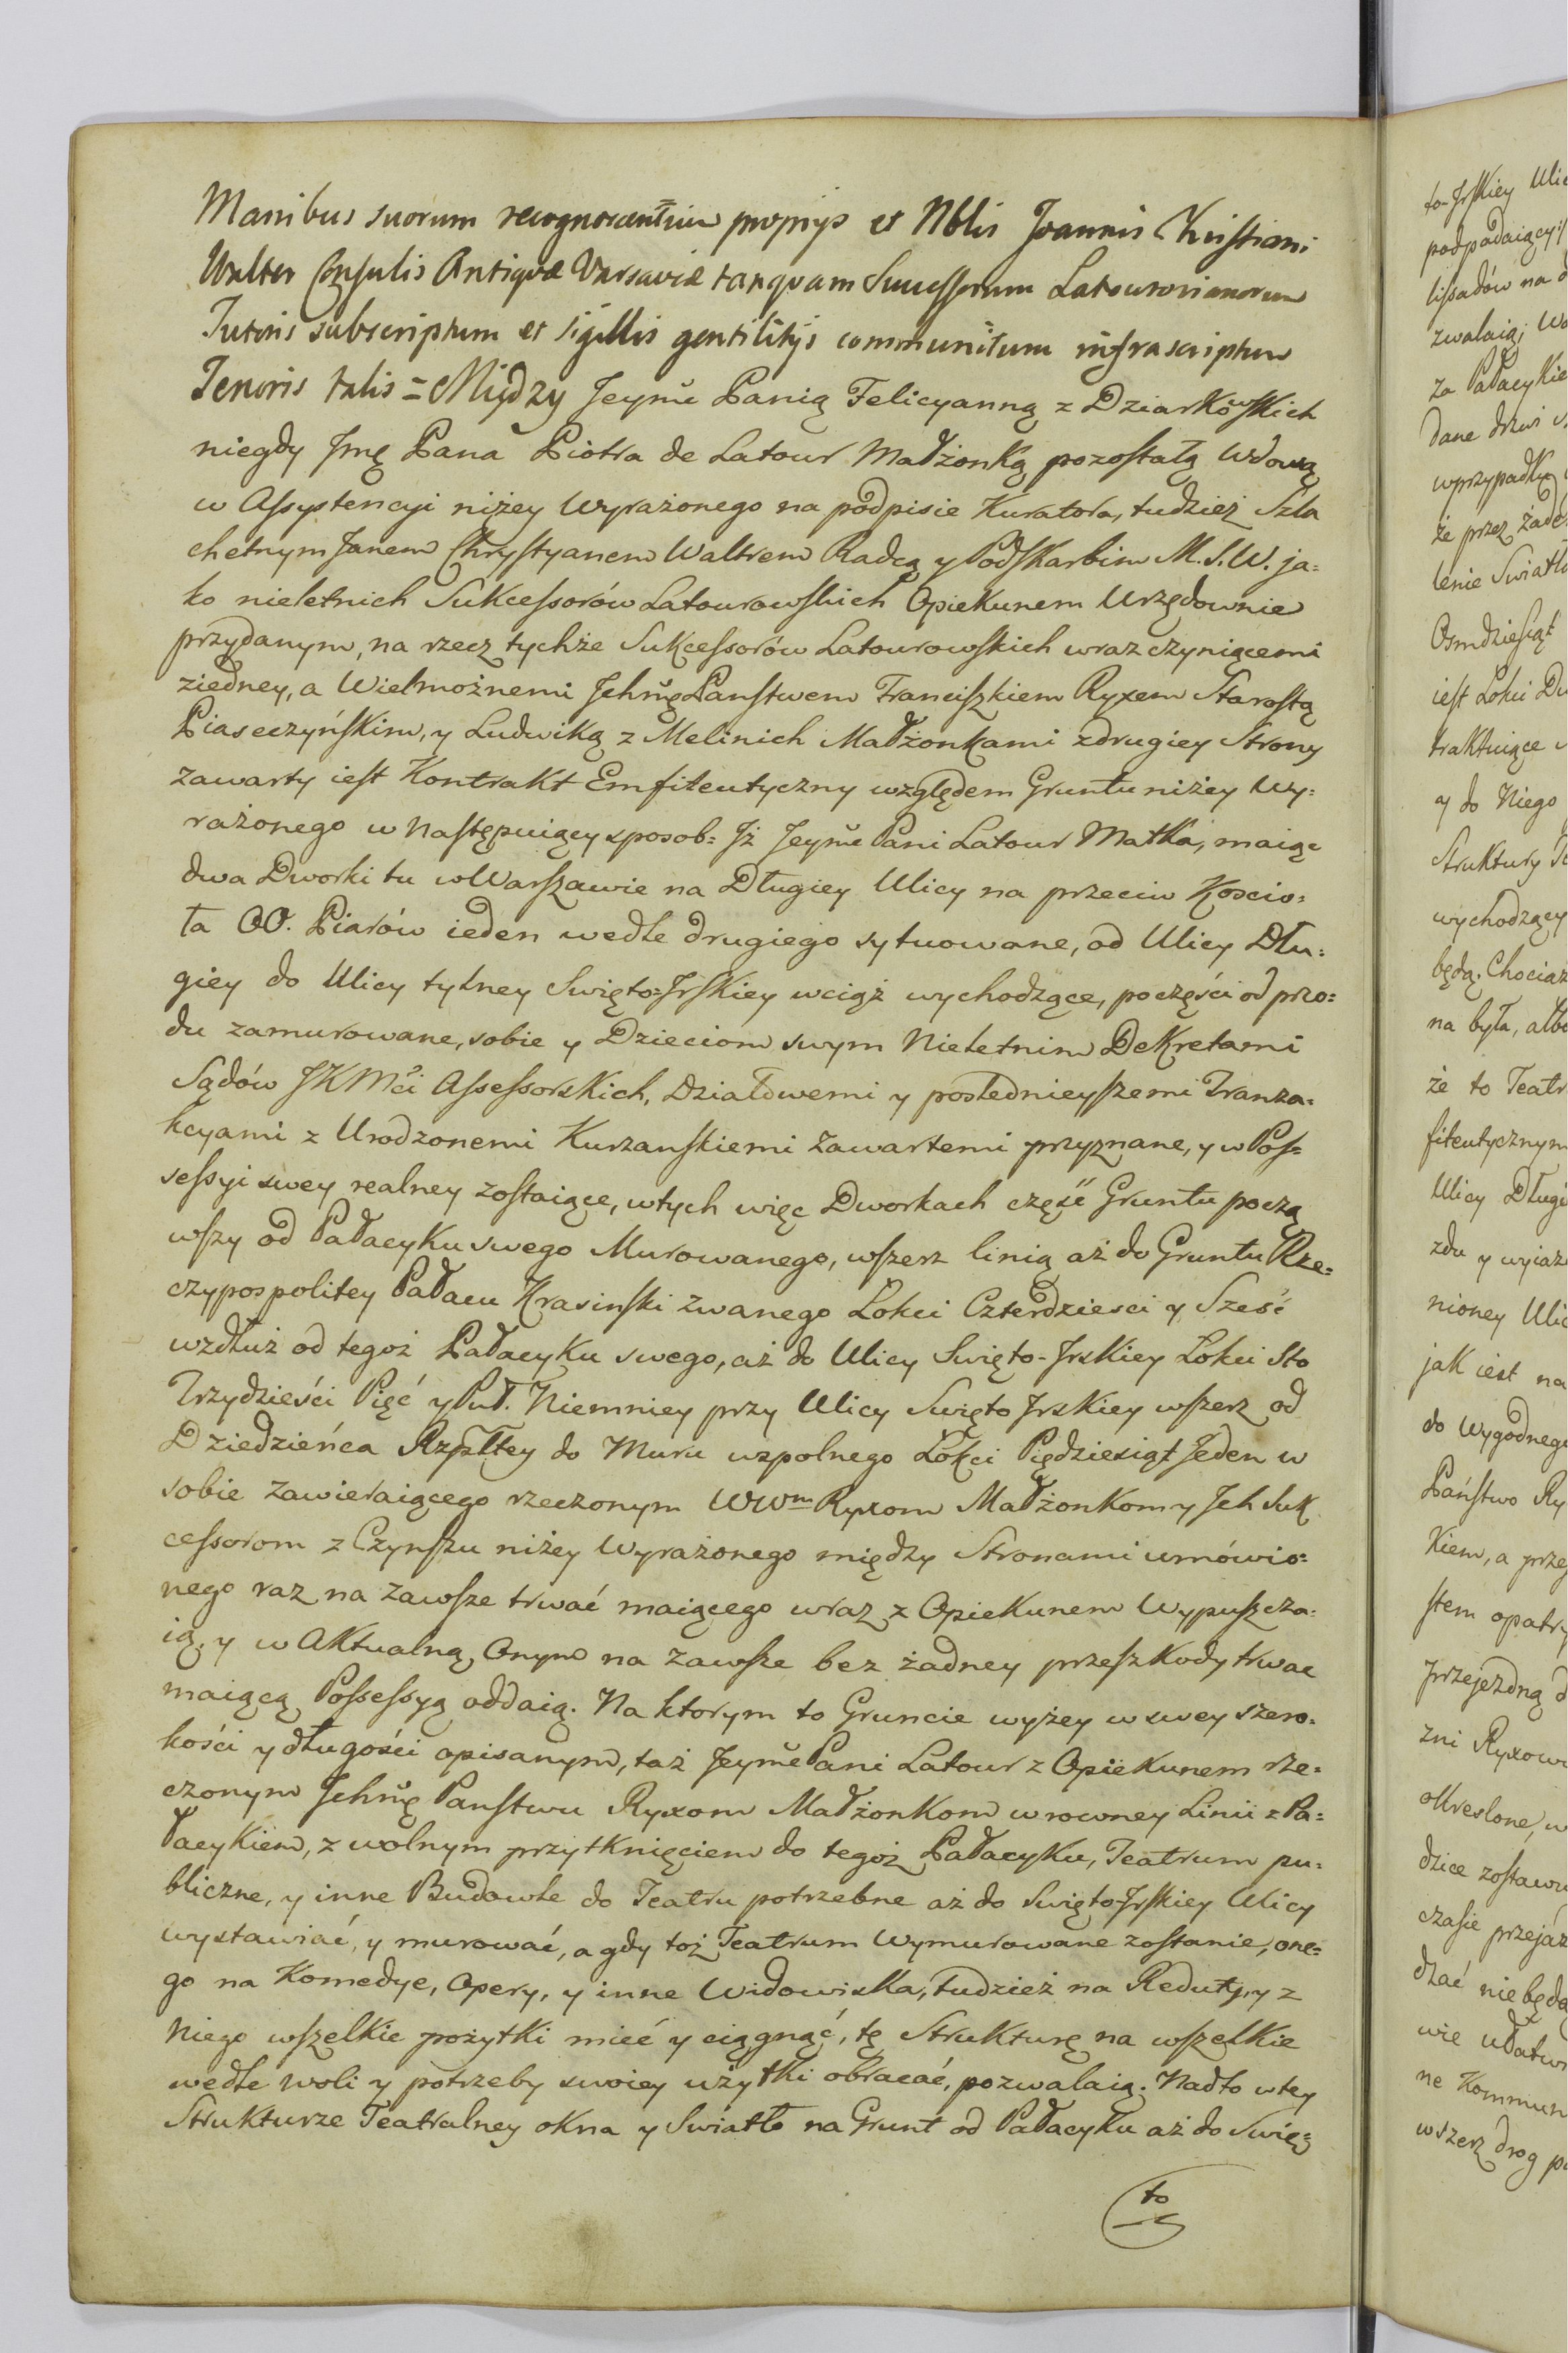 Manibus suorum recognoscentium proprijs et Nblis Joannis Christiani
Walter Consulis Antiquæ Varsaviæ tanquam Successorum Latourovianorum
Tutoris subscriptum et sigillis gentilitijs communitum infrascriptum
Tenoris talis = Między Jeymć Panią Felicyanną z Dziarkowskich
niegdy Jmę Pana Piotra de Latour Małżonką pozostałą Wdową
w Assystencyi niżey Wyrażonego na podpisie Kuratora, tudzież Szla
chetnym Janem Chrystyanem Waltrem Radcą y Podskarbim M. S. W. ja=
ko nieletnich Sukcessorów Latourowskich Opiekunem Urzędownie
przydanym, na rzecz tychże Sukcessorów Latourowskich wraz czyniącemi
ziedney, a Wielmożnemi Jchmę Panstwem Franciszkiem Ryxem Starostą
Piaseczyńskim, y Ludwiką z Melinich Małżonkami zdrugiey Strony
zawarty iest Kontrakt Emfiteutyczny względem Gruntu niżey Wy=
rażonego w następuiący sposob: Jż Jeymć Pani Latour Matka, maiąc
dwa Dworki tu w Warszawie na Długiey Ulicy na przeciw Koscio=
ła OO. Piarów ieden wedle drugiego sytuowane, od Ulicy Dłu=
giey do Ulicy tylney Swięto=Jrskiey wciąż wychodzące, poczęści od przo=
du zamurowane, sobie y Dzieciom swym Nieletnim Dekretami
Sądów JKMći Assessorskich, Działowemi y poslednieyszemi Tranza=
kcyami z Urodzonemi Kurzanskiemi zawartemi przyznane, y w Pos=
sessyi swey realney zostaiące, wtych więc Dworkach część Gruntu począ
wszy od Pałacyku swego Murowanego, wszerz linią aż do Gruntu Rze=
czypospolitey Pałacu Krasinski zwanego Łokci Czterdziesci y Sześć
wzdłuż od tegoż Pałacyku swego, aż do Ulicy Swięto-Jrskiey Łokci Sto
Trzydzieści Pięć y Puł. Niemniey przy Ulicy Swięto Jrskiey wszerz od
Dziedzieńca Rzpltey do Muru wspolnego Łokci Piędziesiąt Jeden w
sobie zawieraiącego rzeczonym WWm Ryxom Małżonkom y Jch Suk
cessorom z Czynszu niżey Wyrażonego między Stronami umówio=
nego raz na zawsze trwać maiącego wraz z Opiekunem Wypuszcza=
ią, y w Aktualną Onym na zawsze bez żadney przeszkody trwac
maiącą Possessyą oddaią. Na ktorym to Gruncie wyżey w swey szero=
kości y długości opisanym, taż Jeymć Pani Latour z Opiekunem rze=
czonym Jchmę Panstwu Ryxom Małżonkom w rowney Linii z Pa=
łacykiem, z wolnym przytknięciem do tegoż Pałacyku, Teatrum pu=
bliczne, y inne Budowle do Teatru potrzebne aż do Swięto Jrskiey Ulicy
wystawiać, y murować, a gdy toż Teatrum Wymurowane zostanie, one=
go na Komedye, Opery, y inne Widowiska, tudzież na Reduty, y z
Niego wszelkie pożytki mieć y ciągnąć, tę Strukturę na wszelkie
wedle woli y potrzeby swoiey użytki obracać, pozwalaią. Nadto wtey
Strukturze Teatralney okna y Swiatło na Grunt od Pałacyku aż do Swię=
to
to-Jrskiey Ulic
podpadaiący
lissadów na d
zwalaią; Wo
za Pałacykie
dane drzwi
wprzypadku
że przez żade
lenie Swiatła
Osmdziesiąt
iest Łokci Dw
traktuiące
y do Niego
Struktury Te
wychodzący
będą. Chociaż
na była, albo
że to Teatr
fiteutycznym
Ulicy Długi
zdu y wyiaz
nioney Ulic
jak iest na
do Wygodnego
Państwo Ry
kiem, a przez
stem opatrz
przejezdną d
zni Ryxowi
okreslone, w
dzice zostawu
czasie przejaz
dzać niebęda
wie ułatwi
ne Kommun
wszerz drog po